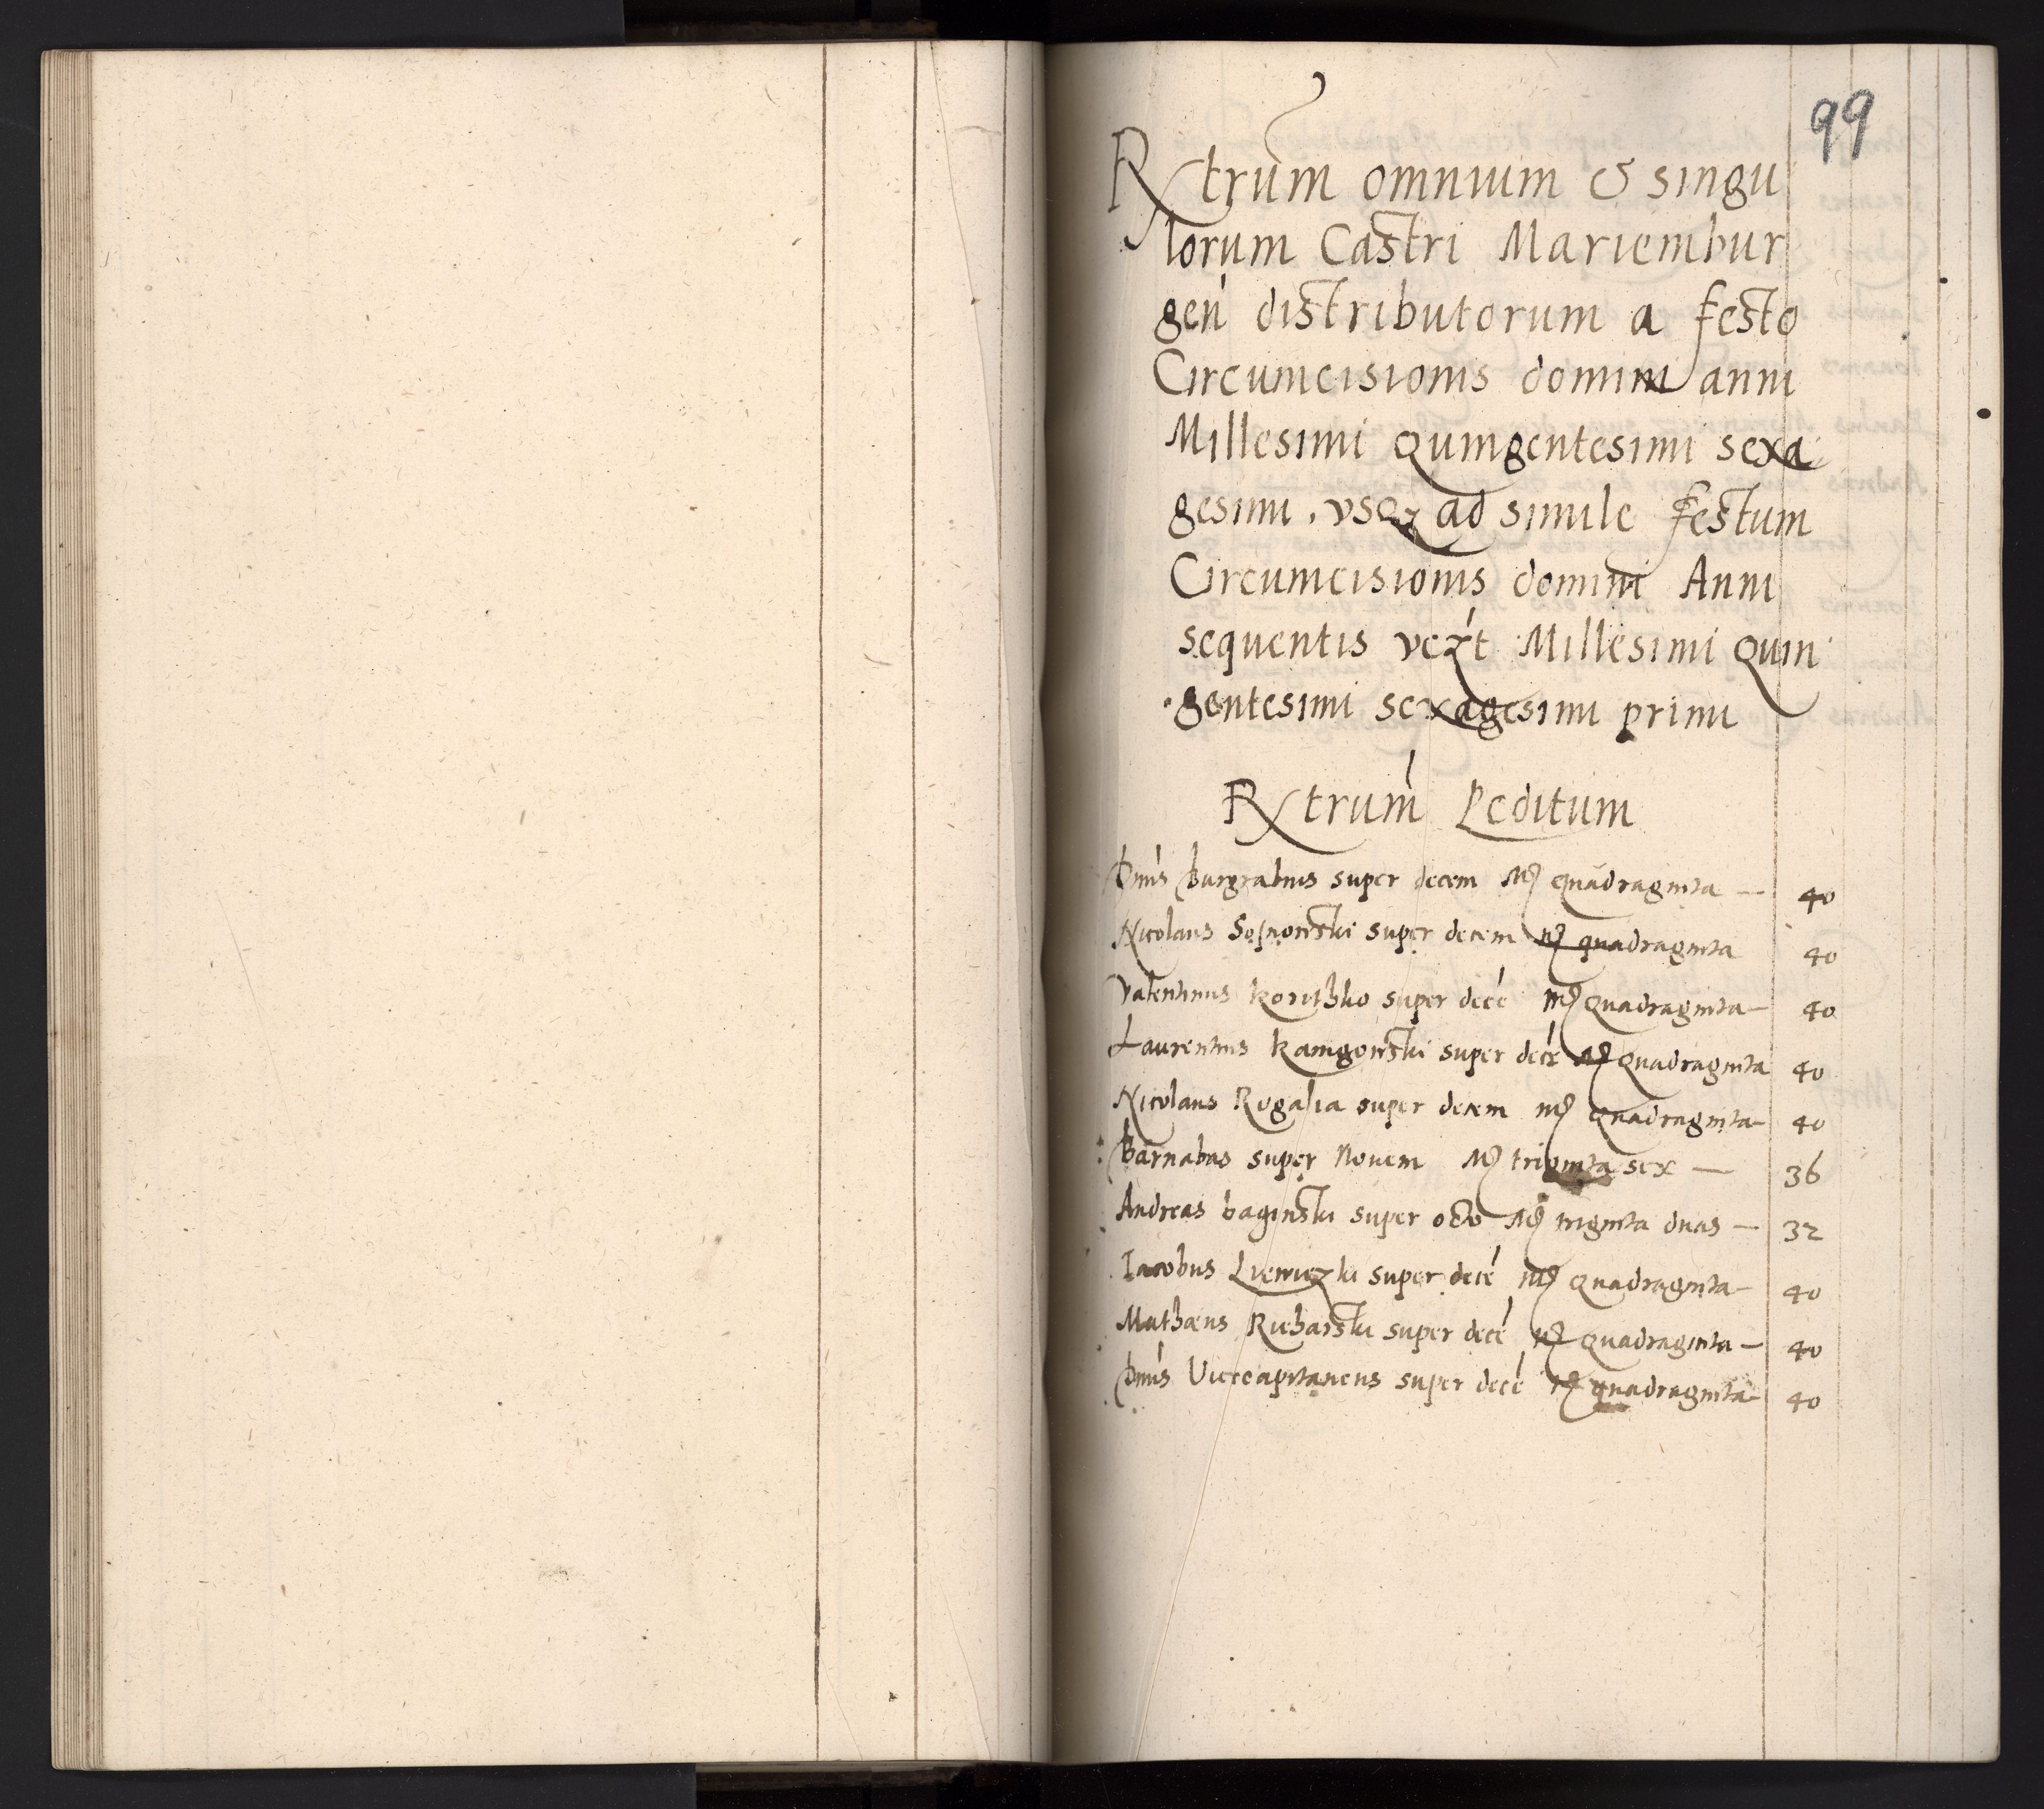 99
Rxtrum omnium & singu
lorum Castri Mariembur
gen distributorum a festo
Circumcisionis domini anni
Millesimi Quingentesimi sexa
gesimi, vsqz ad simile festum
Circumcisionis domini Anni
sequentis Millesimi Quin
gentesimi sexagesimi primi
Rxtrum Peditum
Dnus Burgrabius super decem Mr quadraginta — 40
Nicolaus Sosnowski super decem mr quadraginta 40
Valentinus Korithko super dece mr Quadraginta — 40
Laurentius super dece mr Quadraginta 40
Nicolaus Rogalia super decem mr quadraginta — 40
Barnabas super Nouem Mr triginta sex — 36
Andreas baginski super octo Mr triginta duas — 32
Iacobus super dece mr quadraginta — 40
Mathæus super dece mr quadraginta — 40
Dnus Vicecapitaneus super dece mr quadraginta — 40